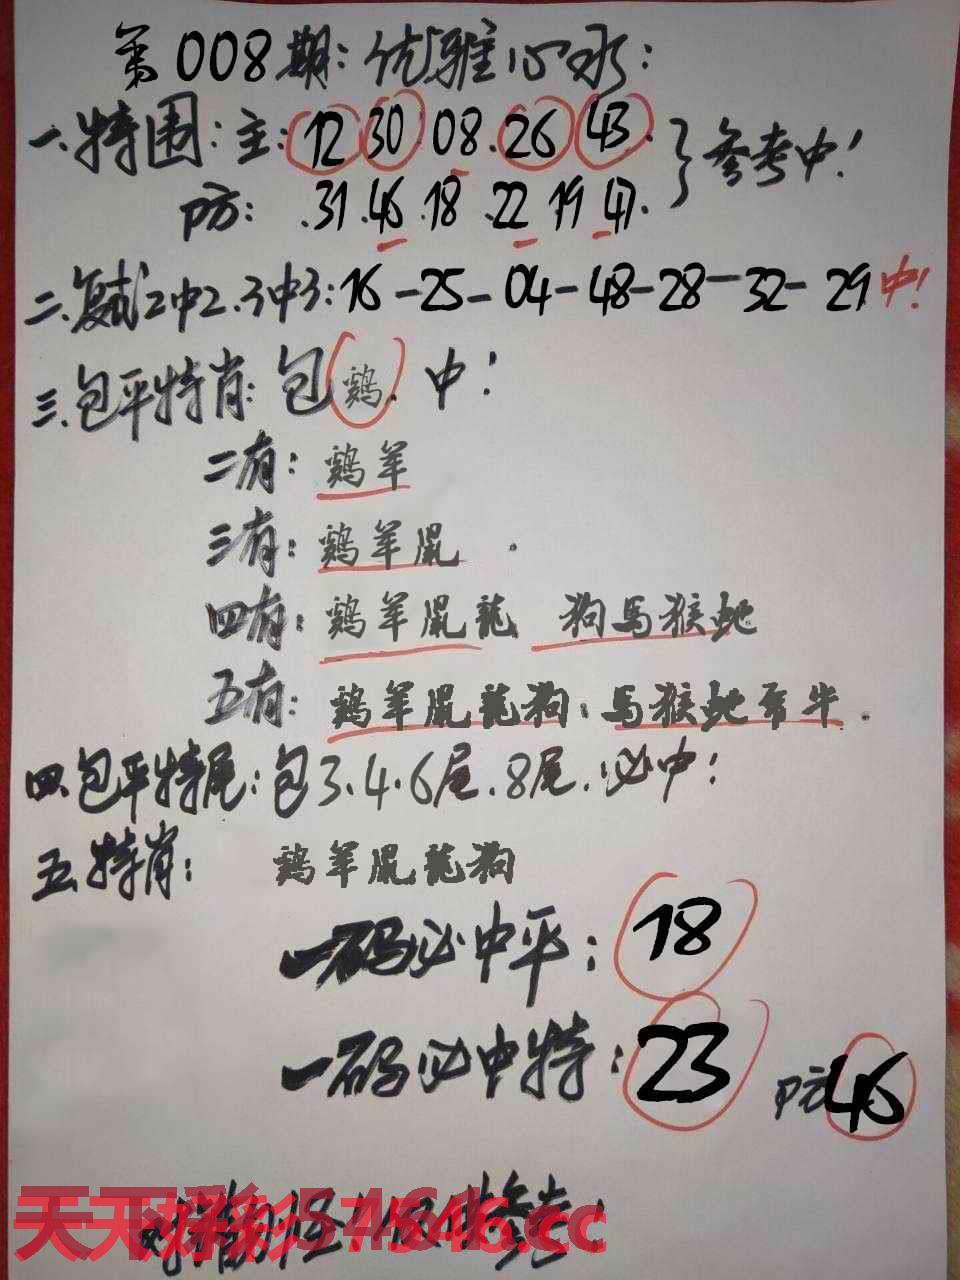 第008期:优雅心水:
一.特围:主:12 30 08.26 43.}参考中!
防: .31.46.18.22 19 47.
二.复式2中2.3中3:16-25-04-48-28-32-29中!
三.包平特肖:包鷄.中!
二有:鷄羊
三有:鷄羊鼠.
四有:鷄羊鼠龍 狗馬猴蛇
五有:鷄羊鼠龍狗:馬猴蛇 牛.
四.包平特尾:包3.4.6尾.8尾.必中!
五.特肖: 鷄羊鼠龍狗
一码必中平:18
一码必中特:23 防46
天天好彩 .cc